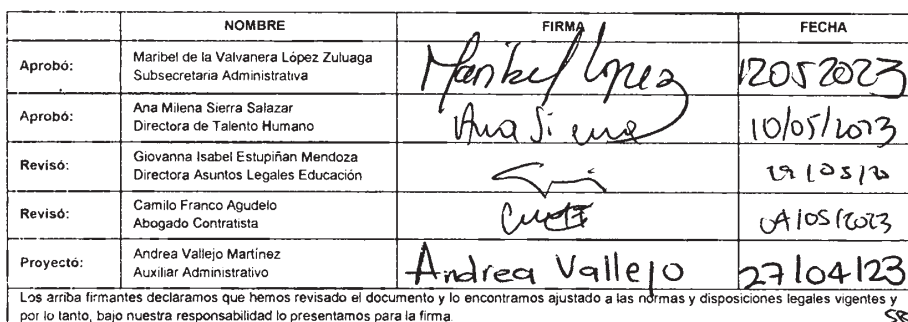 NOMBRE FIRMA FECHA
Aprobó: Maribel de la Valvanera López Zuluaga
Subsecretaria Administrativa
Maribel López 12052023
Aprobó: Ana Milena Sierra Salazar
Directora de Talento Humano
Ana Sierra 10/05/2023
Revisó: Giovanna Isabel Estupiñan Mendoza
Directora Asuntos Legales Educación
Revisó: Camilo Franco Agudelo
Abogado Contratista
04/05/2023
Proyectó: Andrea Vallejo Martínez
Auxiliar Administrativo
Andrea Vallejo 27/04/23
Los arriba firmantes declaramos que hemos revisado el documento y lo encontramos ajustado a las normas y disposiciones legales vigentes y
por lo tanto, bajo nuestra responsabilidad lo presentamos para la firma.